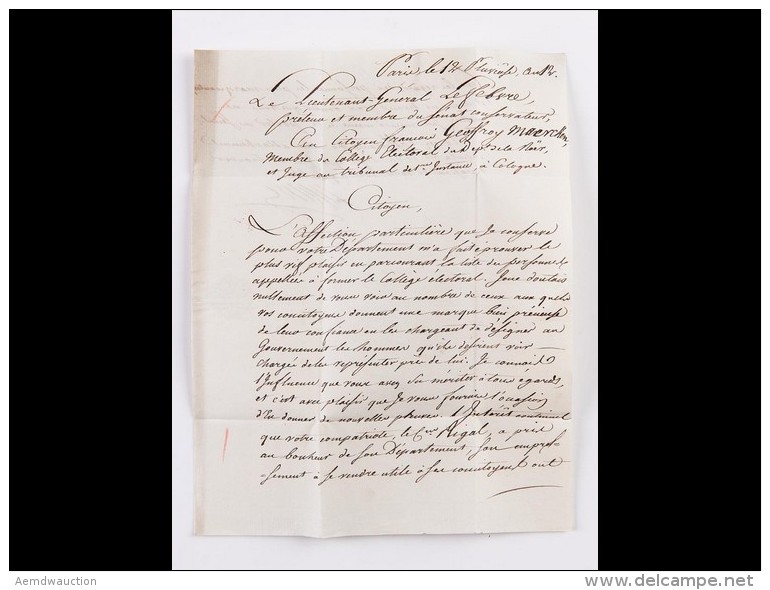 Paris, le 12 Pluviose, an 12.
Le Lieutenant-Général Lefebvre,
préteur et membre du Sénat conservateur,
Au Citoyen français Geoffroy Maercken,
Membre du Collège Electoral du Dépt de la Röer,
et Juge au tribunal de 1ere Instance, à Cologne.
Citoyen,
L'affection particulière que je conserve
pour votre Département m'a fait éprouver le
plus vif plaisir en parcourant la liste des personnes
appellées à former le Collège électoral. Je ne doutais
nullement de vous voir au nombre de ceux aux quels
vos concitoyens donnent une marque bien précieuse
de leur confiance en les chargeant de désigner au
Gouvernement les hommes qu'ils desirent voir
chargés de les représenter près de lui. Je connais
l'Influence que vous avez su mériter à tous égards,
et c'est avec plaisir que je vous fournis l'occasion
d'en donner de nouvelles preuves. L'Intérêt continuel
que votre compatriote, le Cen Rigal, a pris
au bonheur de son Département, son empres-
-sement à se rendre utile à ses concitoyens ont
Aemdwauction
delcampe.net